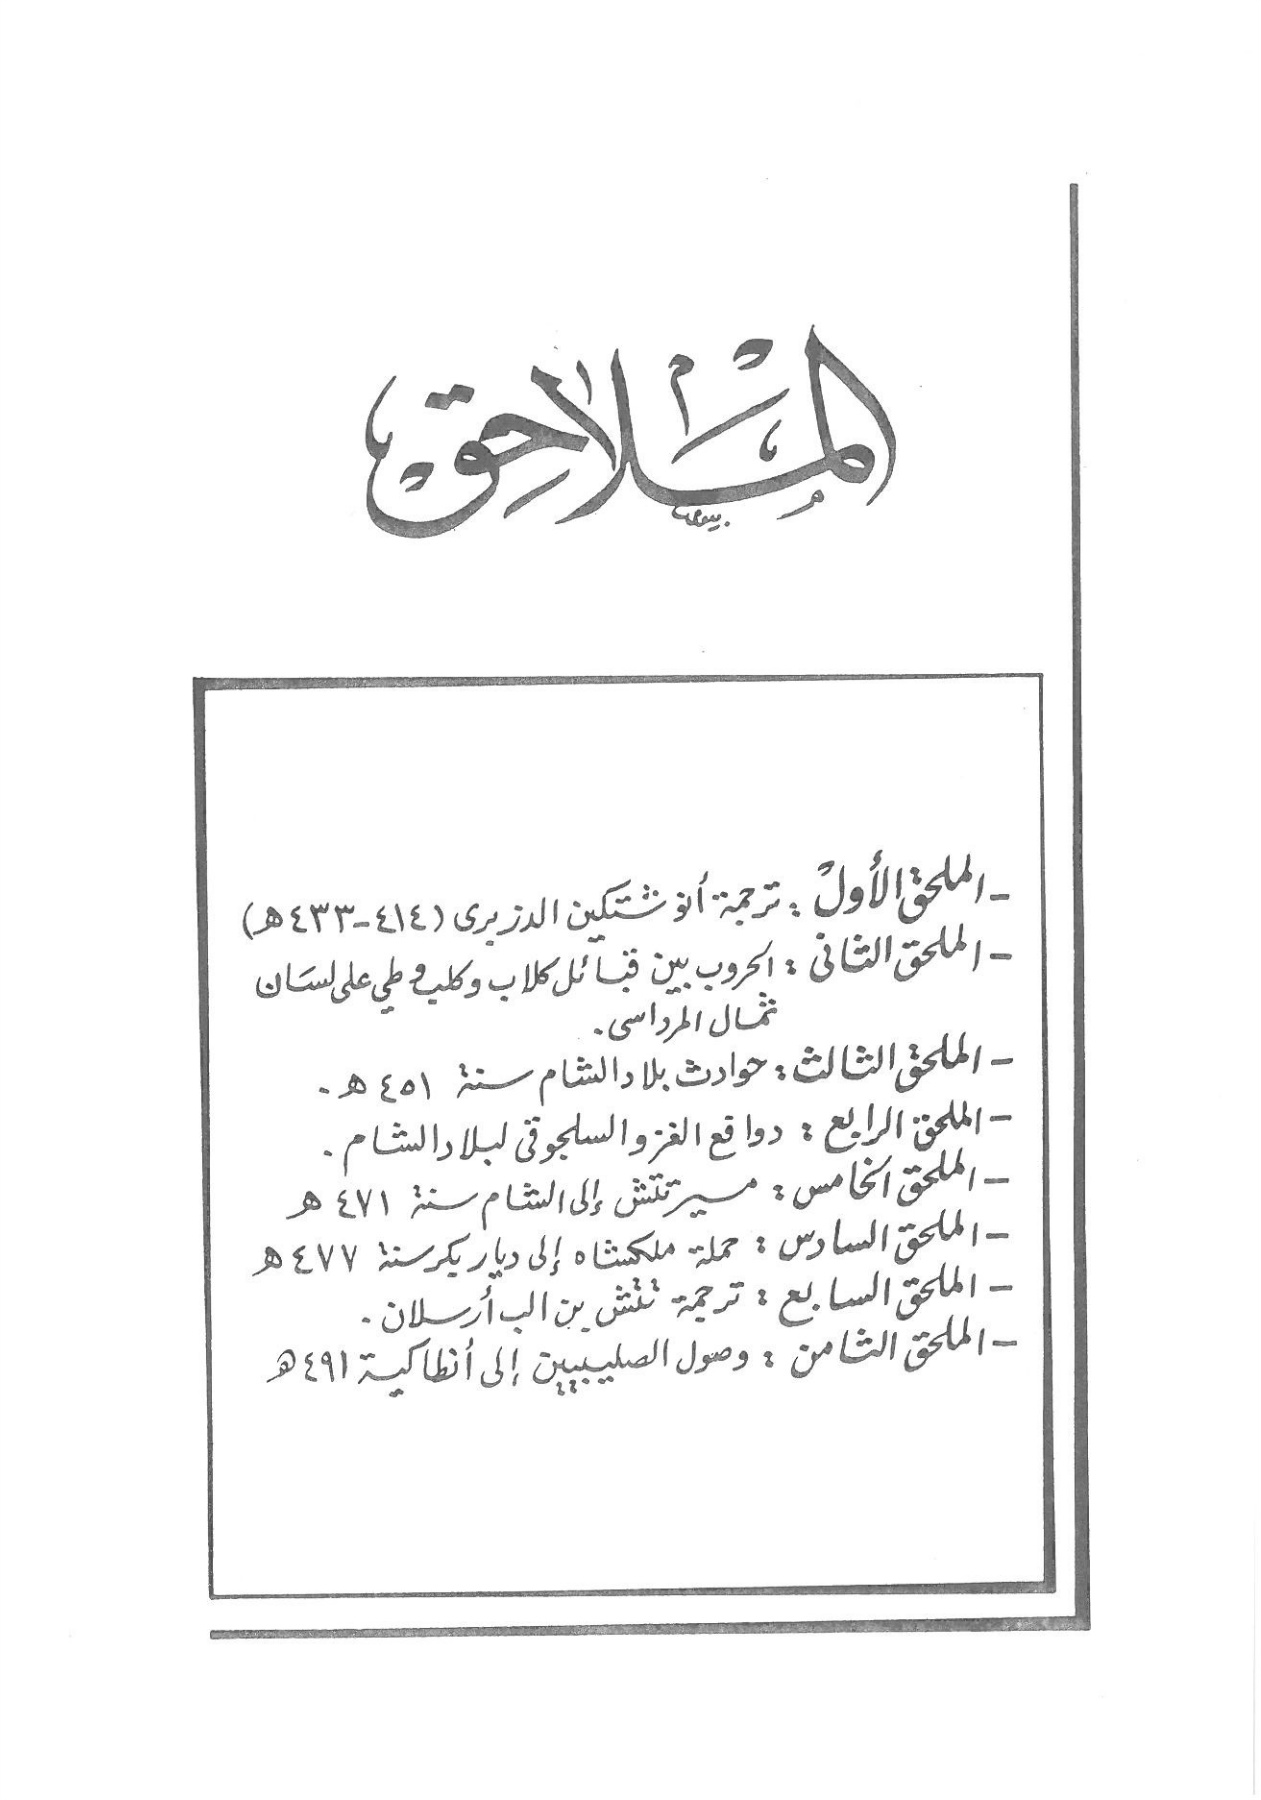 الملاحق
- الملحق الأول : ترجمة أنوشتكين الدزبرى (٤١٤-٤٣٣هـ)
- الملحق الثانى : الحروب بين قبائل كلاب وكلب وطي على لسان
ثمال المرداسى .
- الملحق الثالث : حوادث بلاد الشام سنة ٤٥١ هـ .
- الملحق الرابع : دوافع الغزو السلجوقى لبلاد الشام .
- الملحق الخامس : مسير تتش إلى الشام سنة ٤٧١ هـ
- الملحق السادس : حملة ملكشاه إلى ديار بكر سنة ٤٧٧ هـ
- الملحق السابع : ترجمة تتش بن الب أرسلان .
- الملحق الثامن : وصول الصليبيين إلى أنطاكية ٤٩١ هـ